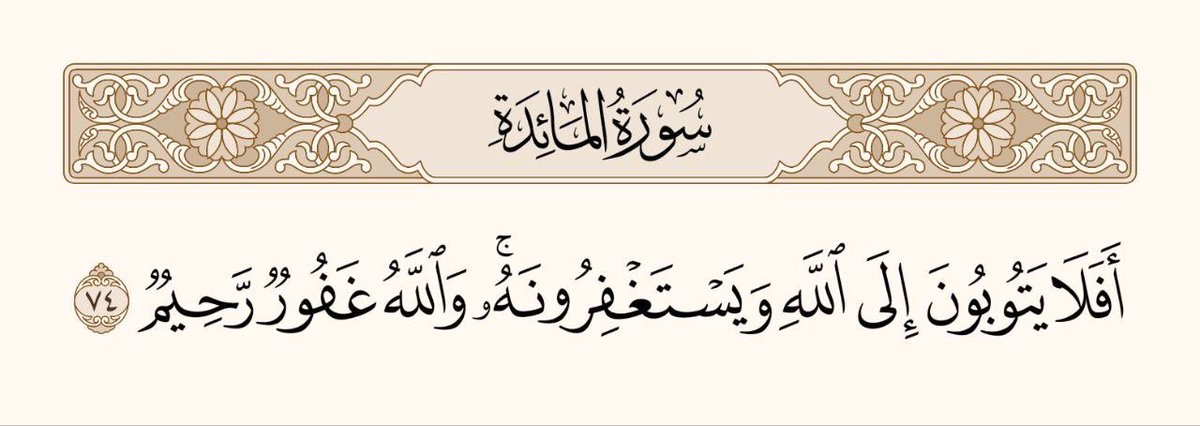 سُورَةُ المَائِدَةِ
أَفَلَا يَتُوبُونَ إِلَى ٱللَّهِ وَيَسۡتَغۡفِرُونَهُۥۚ وَٱللَّهُ غَفُورٞ رَّحِيمٞ ٧٤